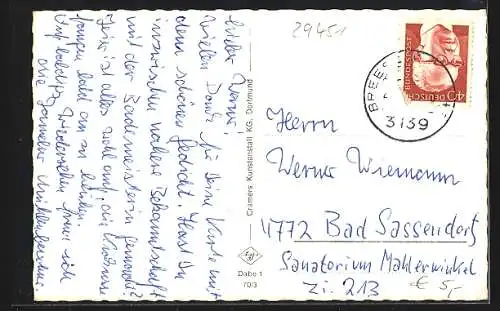 29451
Lieber Werner!
Vielen Dank für Deine Karte mit
dem schönen Gedicht. Hast Du
inzwischen nähere Bekanntschaft
mit der Bademeisterin gemacht?
Hier ist alles wohl auf, die
fangen bald an zu blühen.
Auf baldiges Wiedersehen freut sich
Cramers Kunstanstalt KG, Dortmund
Dabe 1
70/3
DEUTSCHE BUNDESPOST
40
3139
Herrn
Werner Wiemann
4772 Bad Sassendorf
Sanatorium Mahlerwinkel
Zi. 213
€ 5,-